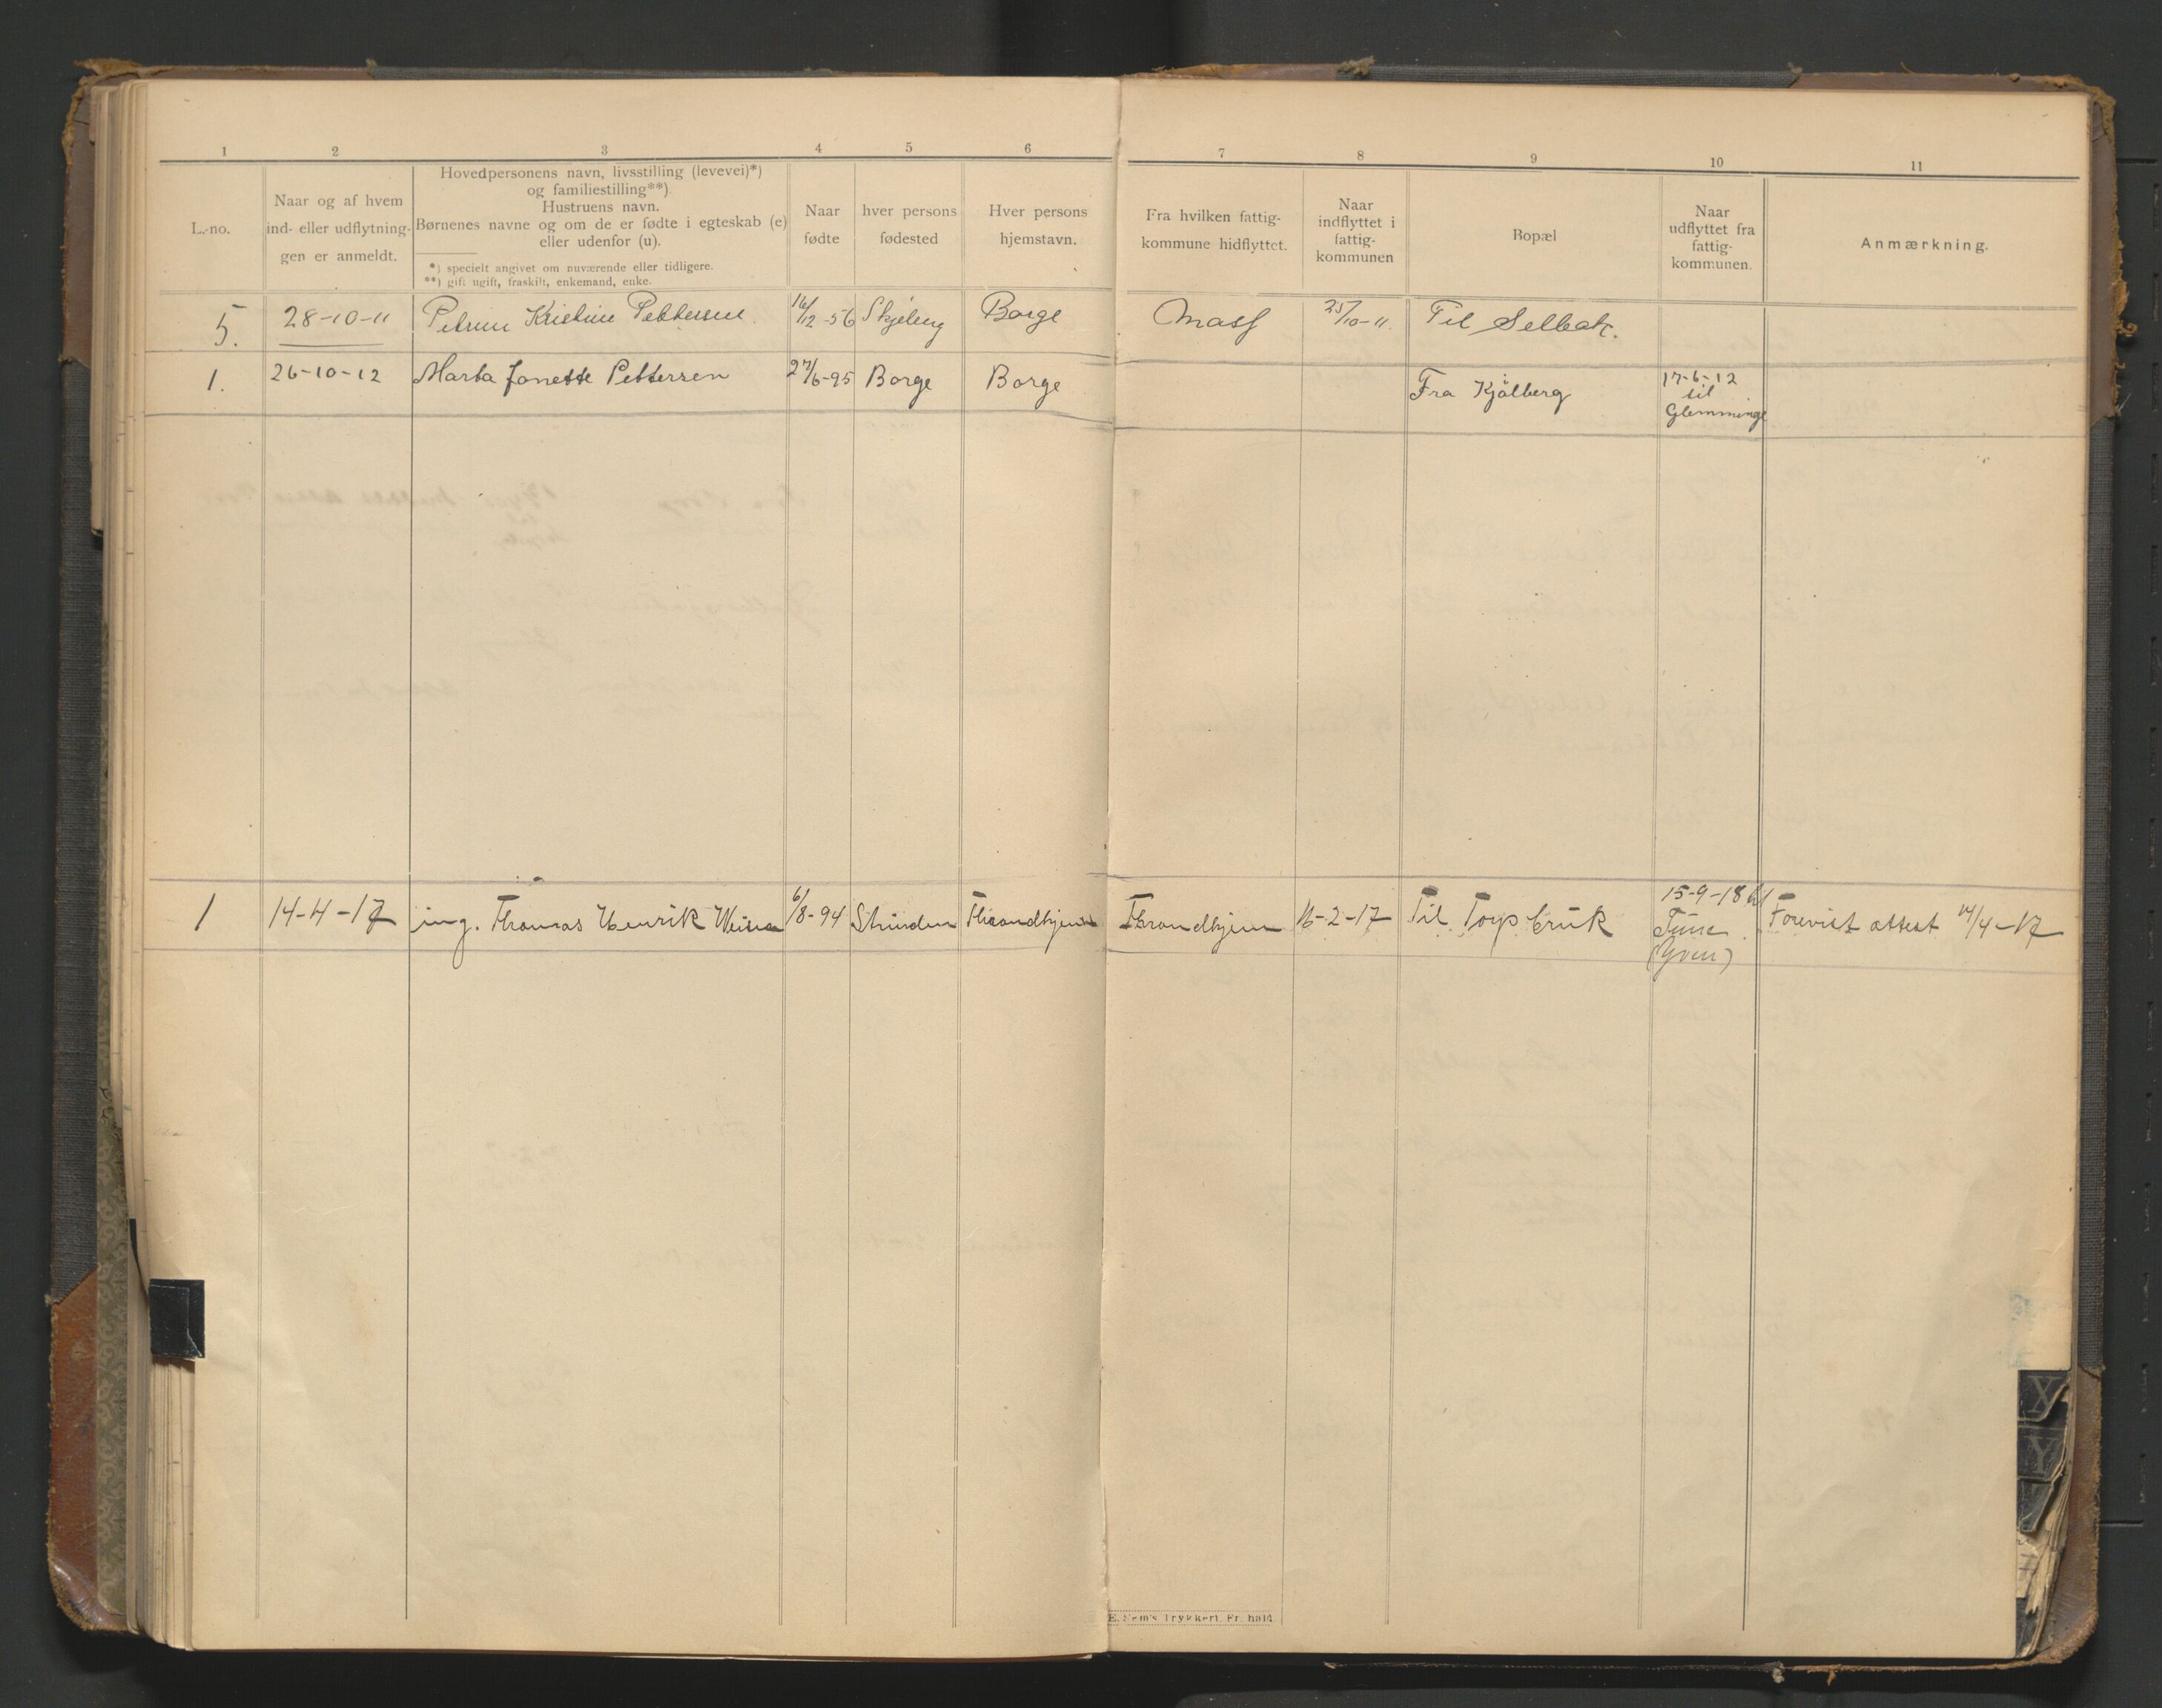 1 2 3 4 5 6 7 8 9 10 11
L.-no.
Naar og af hvem
ind- eller udflytnin-
gen er anmeldt.
Hovedpersonens navn, livsstilling (levevei)*)
og familiestilling**).
Hustruens navn.
Børnenes navne og om de er fødte i egteskab (e)
eller udenfor (u).
*) specielt angivet om nuværende eller tidligere.
**) gift ugift, fraskilt, enkemand, enke.
Naar
fødte
hver persons
fødested
Hver persons
hjemstavn.
Fra hvilken fattig-
kommune hidflyttet.
Naar
indflyttet i
fattig-
kommunen
Bopæl
Naar
udflyttet fra
fattig-
kommunen.
Anmærkning.
5. 28-10-11 Kristine Pettersen 16/12-56 Skjeberg Borge Moss 25/10-11. Til Selbak.
1. 26-10-12 Marta Jonette Pettersen 27/6-95 Borge Borge Fra Kjølberg 17-6-12
til
Glemminge
1 14-4-17 ing. Thomas Henrik 6/8-94 Strinden Throndhjem Throndhjem 16-2-17 Til Torp bruk 15-9-18 til
Tune
(Yven)
Forevist attest 14/4-17
E. Sem's Trykkeri, Fr. hald.
X
Y